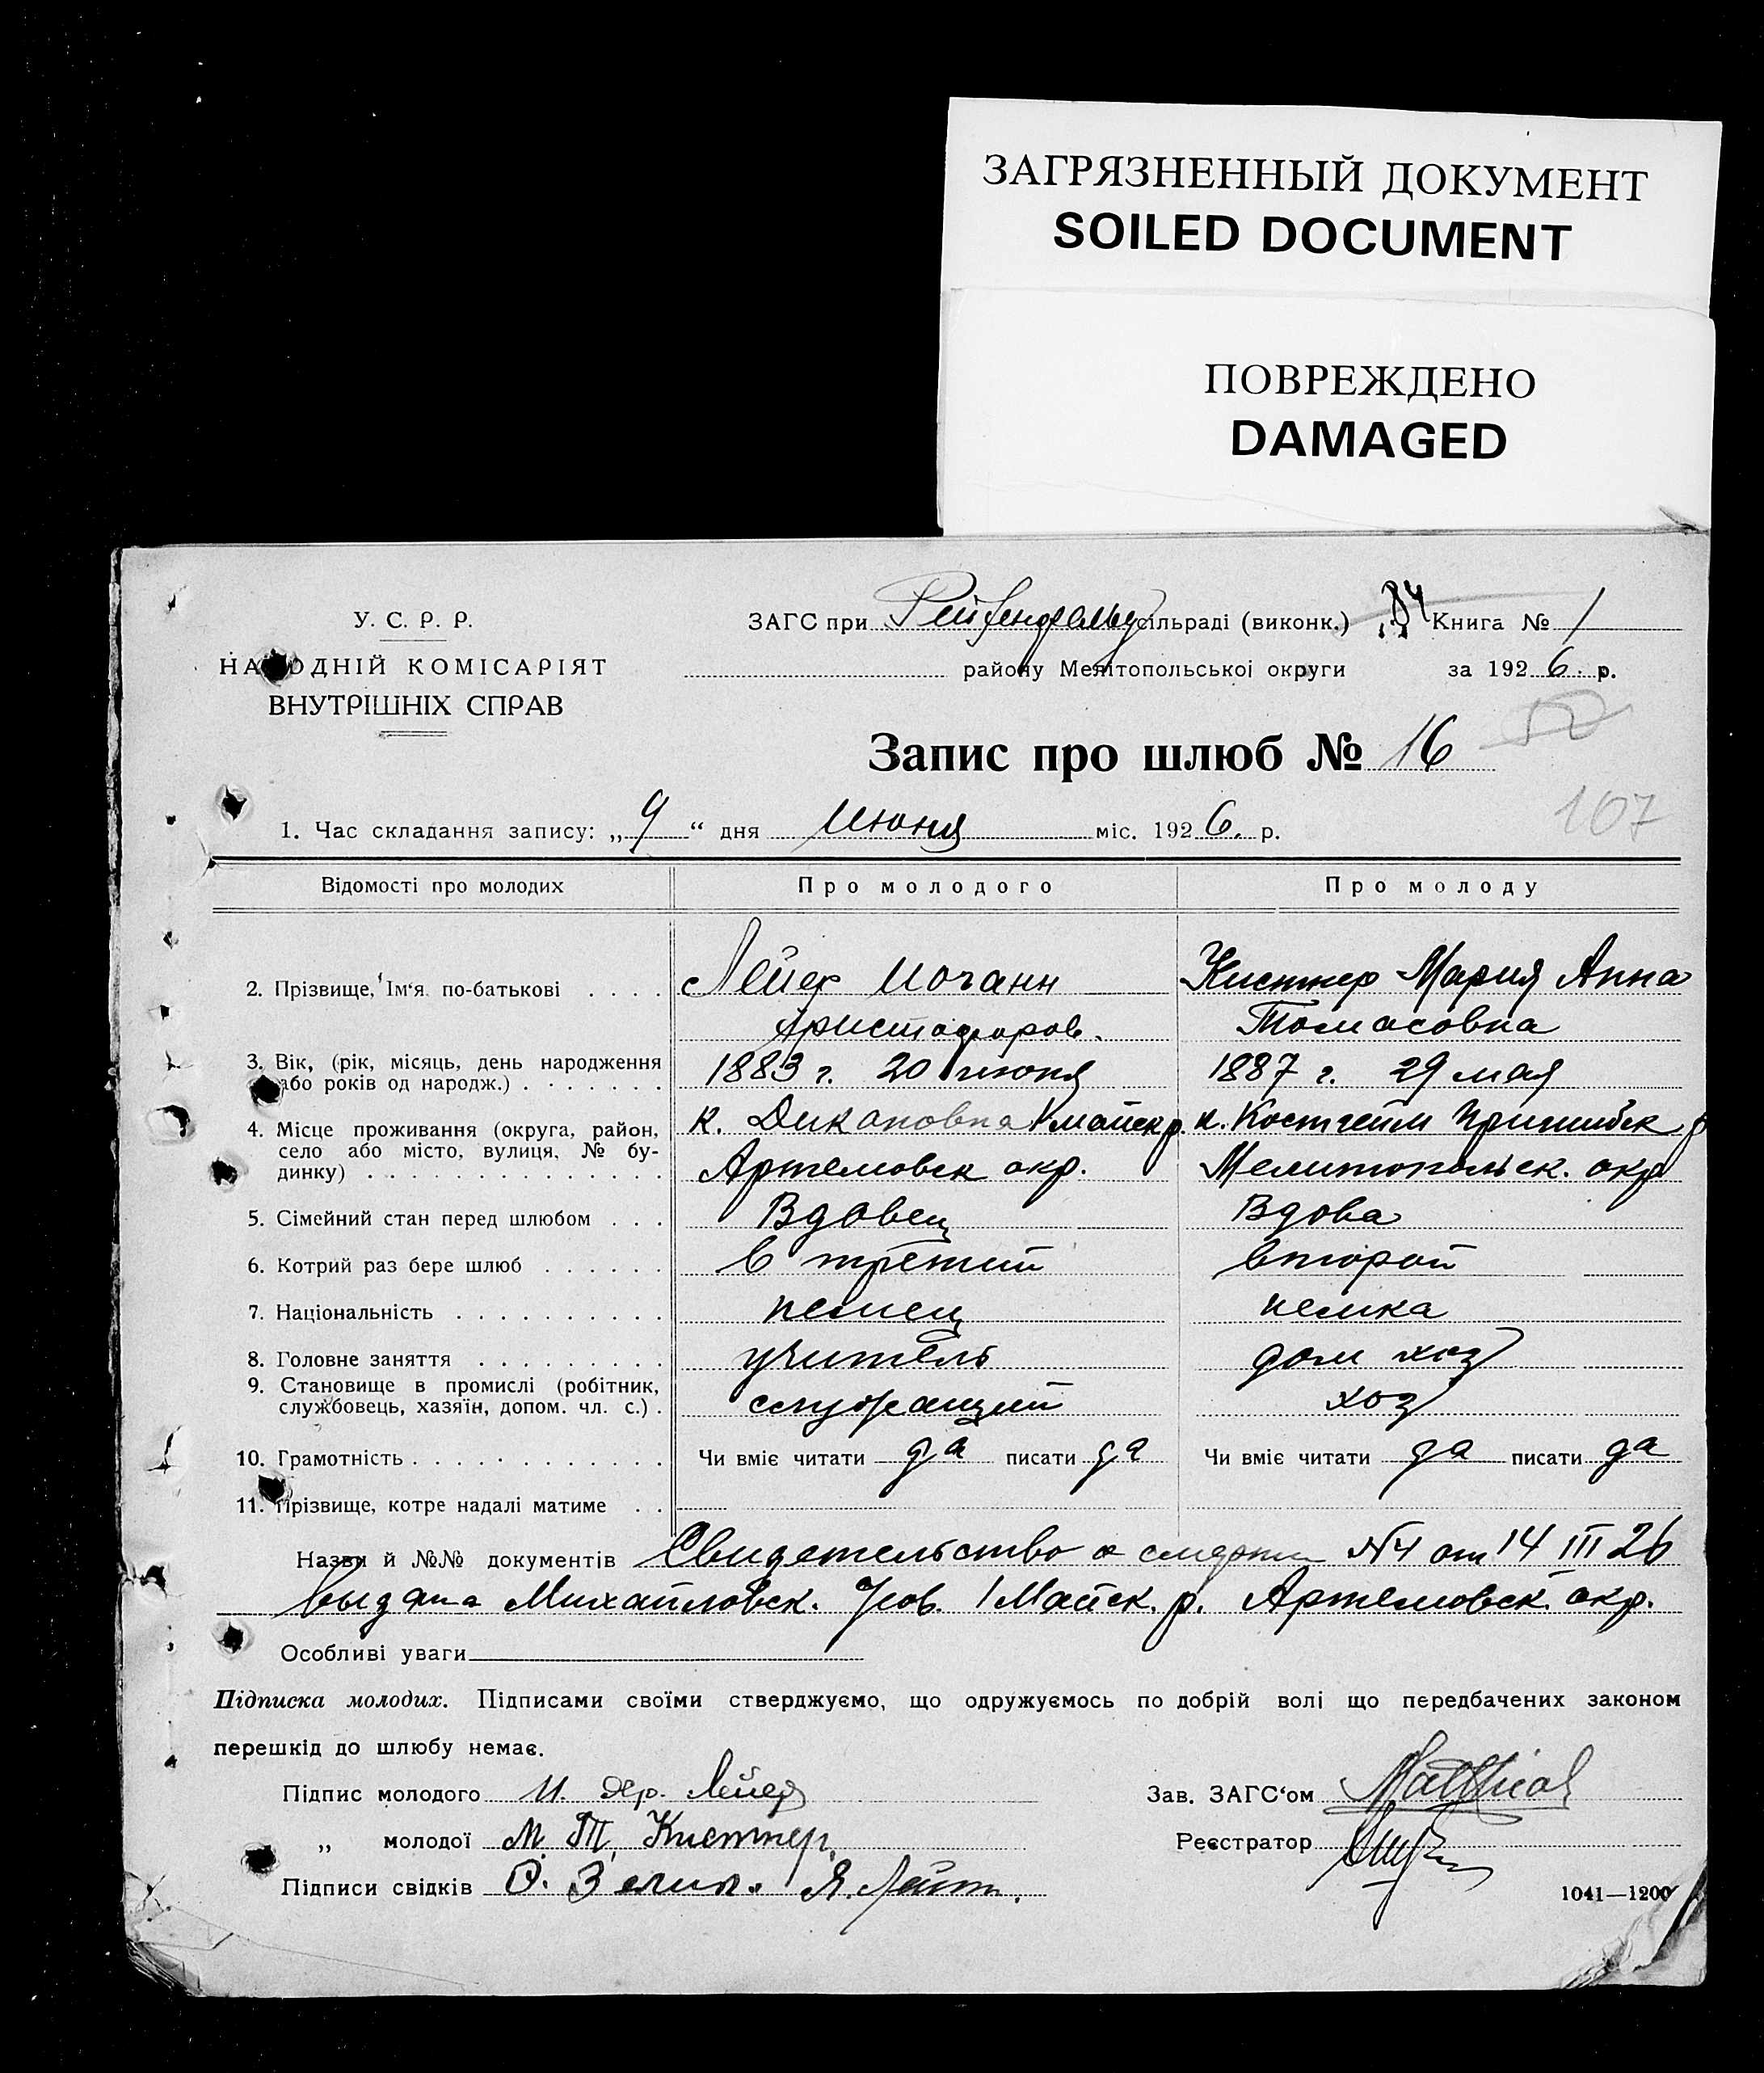 ЗАГРЯЗНЕННЫЙ ДОКУМЕНТ
SOILED DOCUMENT
ПОВРЕЖДЕНО
DAMAGED
У. С. Р. Р.
НАРОДНІЙ КОМІСАРІЯТ
ВНУТРІШНІХ СПРАВ
ЗАГС при сільраді (виконк.) 84 Книга № 1
району Мелітопольської округи за 1926. р.
Запис про шлюб № 16
52
107
1. Час складання запису: „9“ дня июня міс. 1926. р.
Відомості про молодих Про молодого Про молоду
2. Прізвище, Ім‘я по-батькові . . . . Лейер Иоганн Кистнер Мария Анна
Христофоров. Томасовна
3. Вік, (рік, місяць, день народження
або років од народж.) . . . . . . . 1883 г. 20 июня 1887 г. 29 мая
4. Місце проживання (округа, район,
село або місто, вулиця, № бу-
динку) . . . . . . . . . . . . . .
к. 1 майск р. к. Костгейм Пришибск р
Артемовск окр. Мелитопольск. окр
5. Сімейний стан перед шлюбом . . . Вдовец Вдова
6. Котрий раз бере шлюб . . . . . . в третий второй
7. Національність . . . . . . . . . . немец немка
8. Головне заняття . . . . . . . . . учитель дом хоз
9. Становище в промислі (робітник,
службовець, хазяїн, допом. чл. с.) . служащий хоз
10. Грамотність . . . . . . . . . . . . Чи вміє читати да писати да Чи вміє читати да писати да
11. Прізвище, котре надалі матиме . .
Назви й №№ документів Свидетельство о смерти №4 от 14 III 26
выдана Михайловск. 1 Майск. р. Артемовск. окр.
Особливі уваги
Підписка молодих. Підписами своїми стверджуємо, що одружуємось по добрій волі що передбачених законом
перешкід до шлюбу немає.
Підпис молодого И. Хр. Лейер Зав. ЗАГС‘ом
„ молодої М. Т. Кистнер. Реєстратор
Підписи свідків
1041—1200